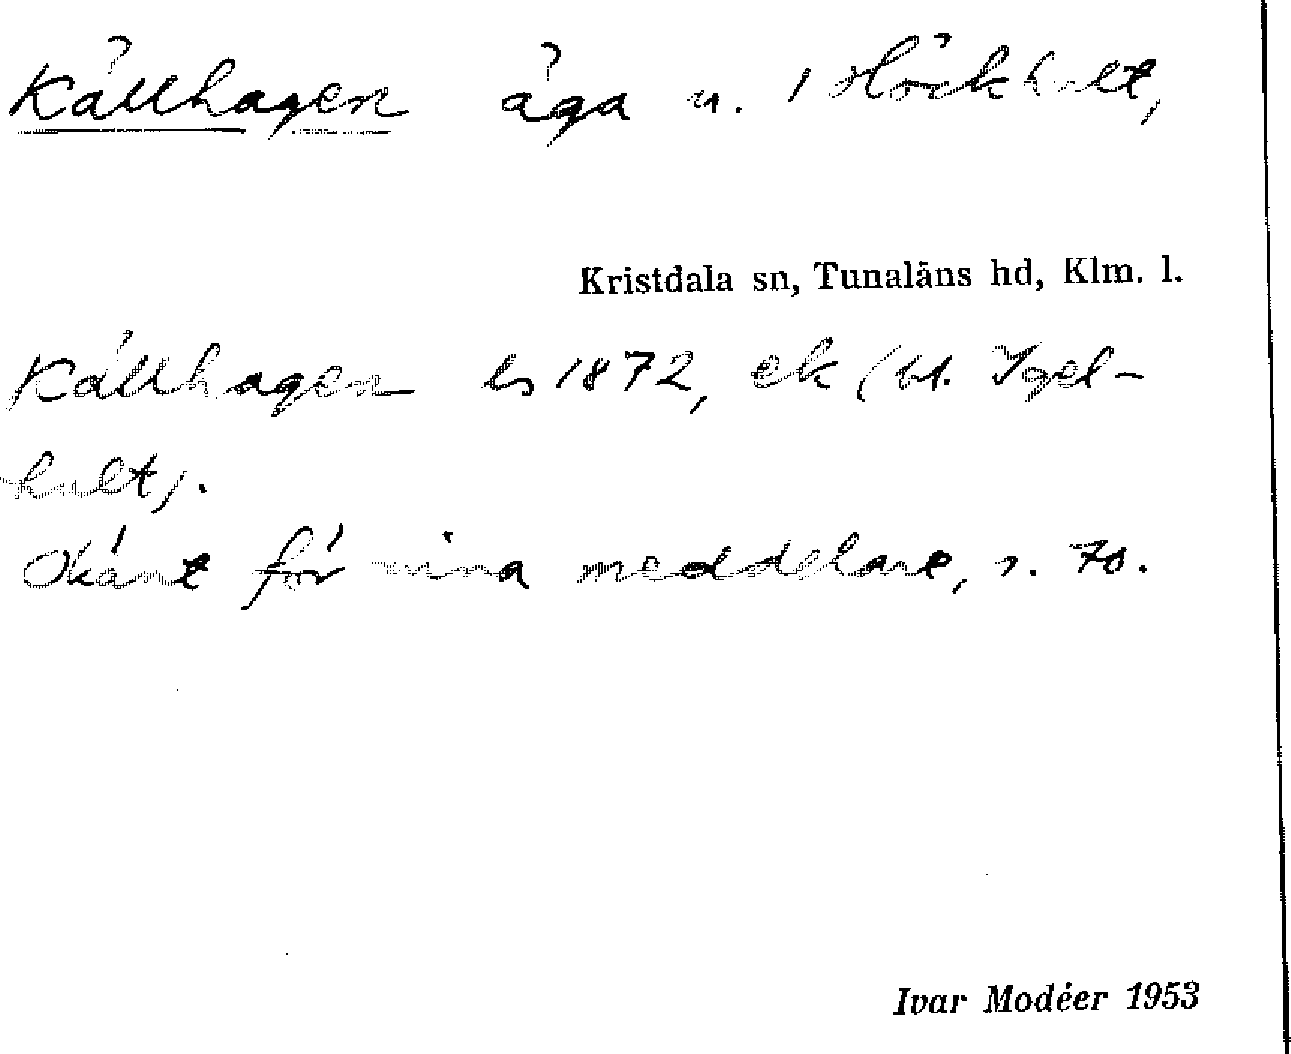 Källhagen äga u. 1 Höckhult,
Kristdala sn, Tunaläns hd, Klm. l.
Källhagen ls 1872, ek (bl. Igel-
hult).
Okänt för mina meddelare, s. 70.
Ivar Modéer 1953